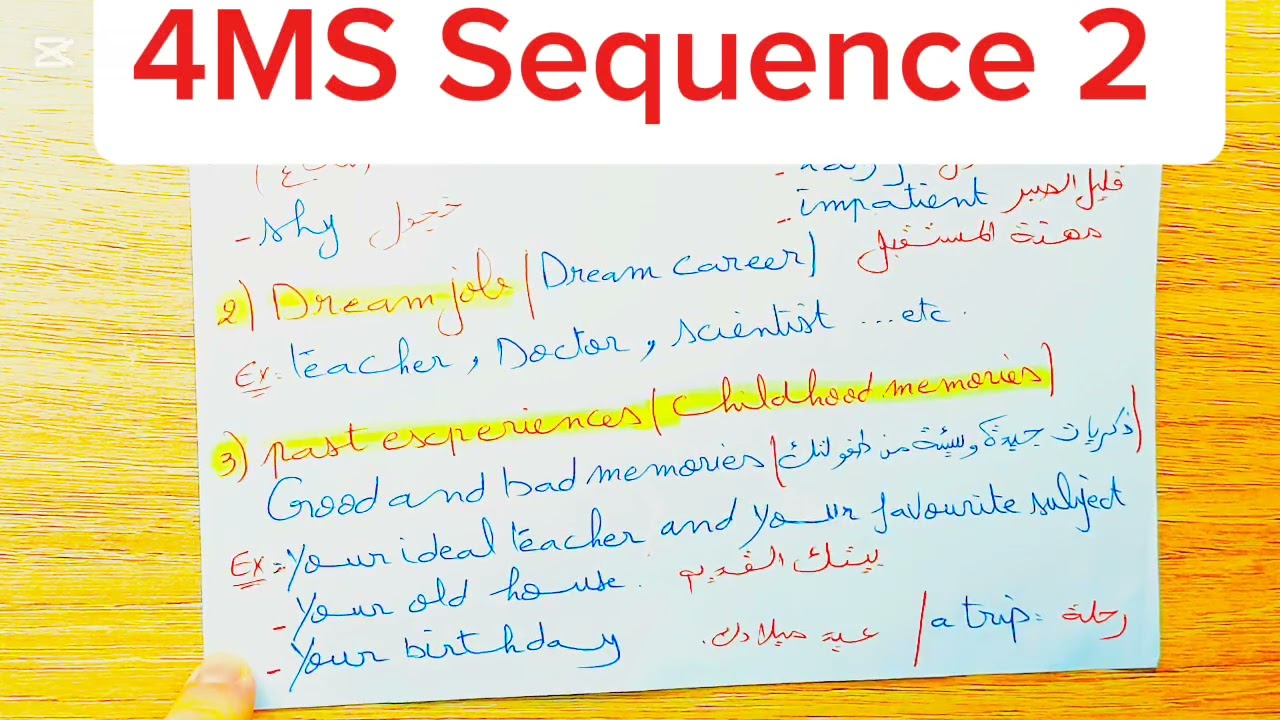 4MS Sequence 2
- shy خجول
- impatient قليل الصبر
2) Dream job / Dream career) مهنة المستقبل
Ex: teacher, Doctor, scientist ... etc.
3) past experiences / Childhood memories)
Good and bad memories / ذكريات جيدة وسيئة من طفولتك)
Ex: - Your ideal teacher and your favourite subject
- Your old house. بيتك القديم
- Your birthday عيد ميلادك. / a trip: رحلة